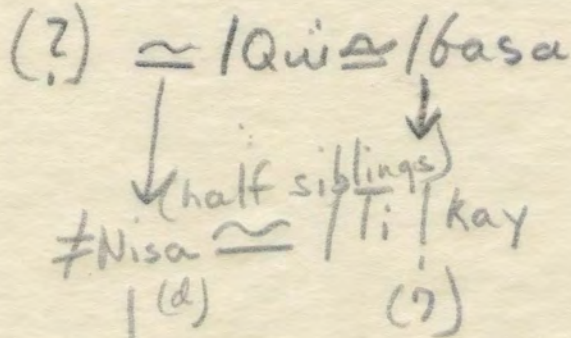 (?) ≃ /Qui ≃ /Gasa
(half siblings)
≠Nisa ≃ /Ti /Kay
(d) (?)